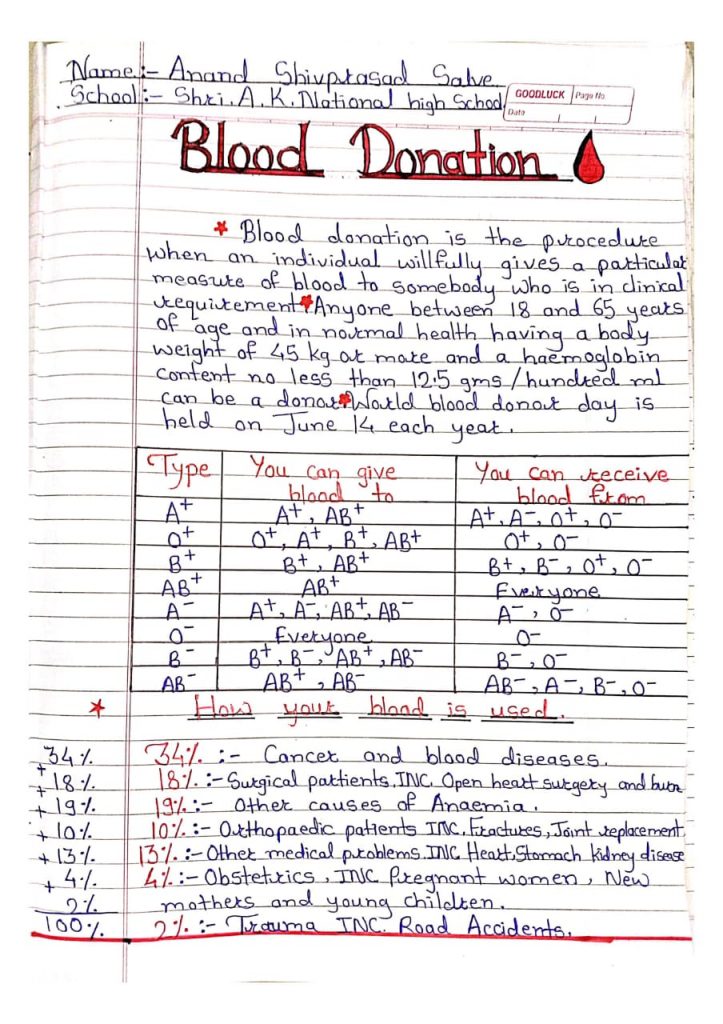 Name:- Anand Shivprasad Salve
School:- Shri. A. K. National high School
GOODLUCK Page No.
Date
Blood Donation
Blood donation is the procedure
when an individual willfully gives a particular
measure of blood to somebody who is in clinical
requirement Anyone between 18 and 65 years
of age and in normal health having a body
weight of 45 kg at more and a haemoglobin
content no less than 12.5 gms/hundred ml
can be a donor World blood donor day is
held on June 14 each year.
Type You can give blood to You can receive blood from
A+ A+, AB+ A+, A-, O+, O-
O+ O+, A+, B+, AB+ O+, O-
B+ B+, AB+ B+, B-, O+, O-
AB+ AB+ Everyone
A- A+, A-, AB+, AB- A-, O-
O- Everyone O-
B- B+, B-, AB+, AB- B-, O-
AB- AB+, AB- AB-, A-, B-, O-
How your blood is used.
34% 34% :- Cancer and blood diseases.
+ 18% 18% :- Surgical partients, INC. Open heart surgery and burn
+ 19% 19% :- Other causes of Anaemia.
+ 10% 10% :- Orthopaedic patients INC, Fractures, Joint replacement
+ 13% 13% :- Other medical problems INC Heart, Stomach kidney disease
+ 4% 4% :- Obstetrics, INC pregnant women, New
2% mothers and young children.
100% 2% :- Trauma INC. Road Accidents.